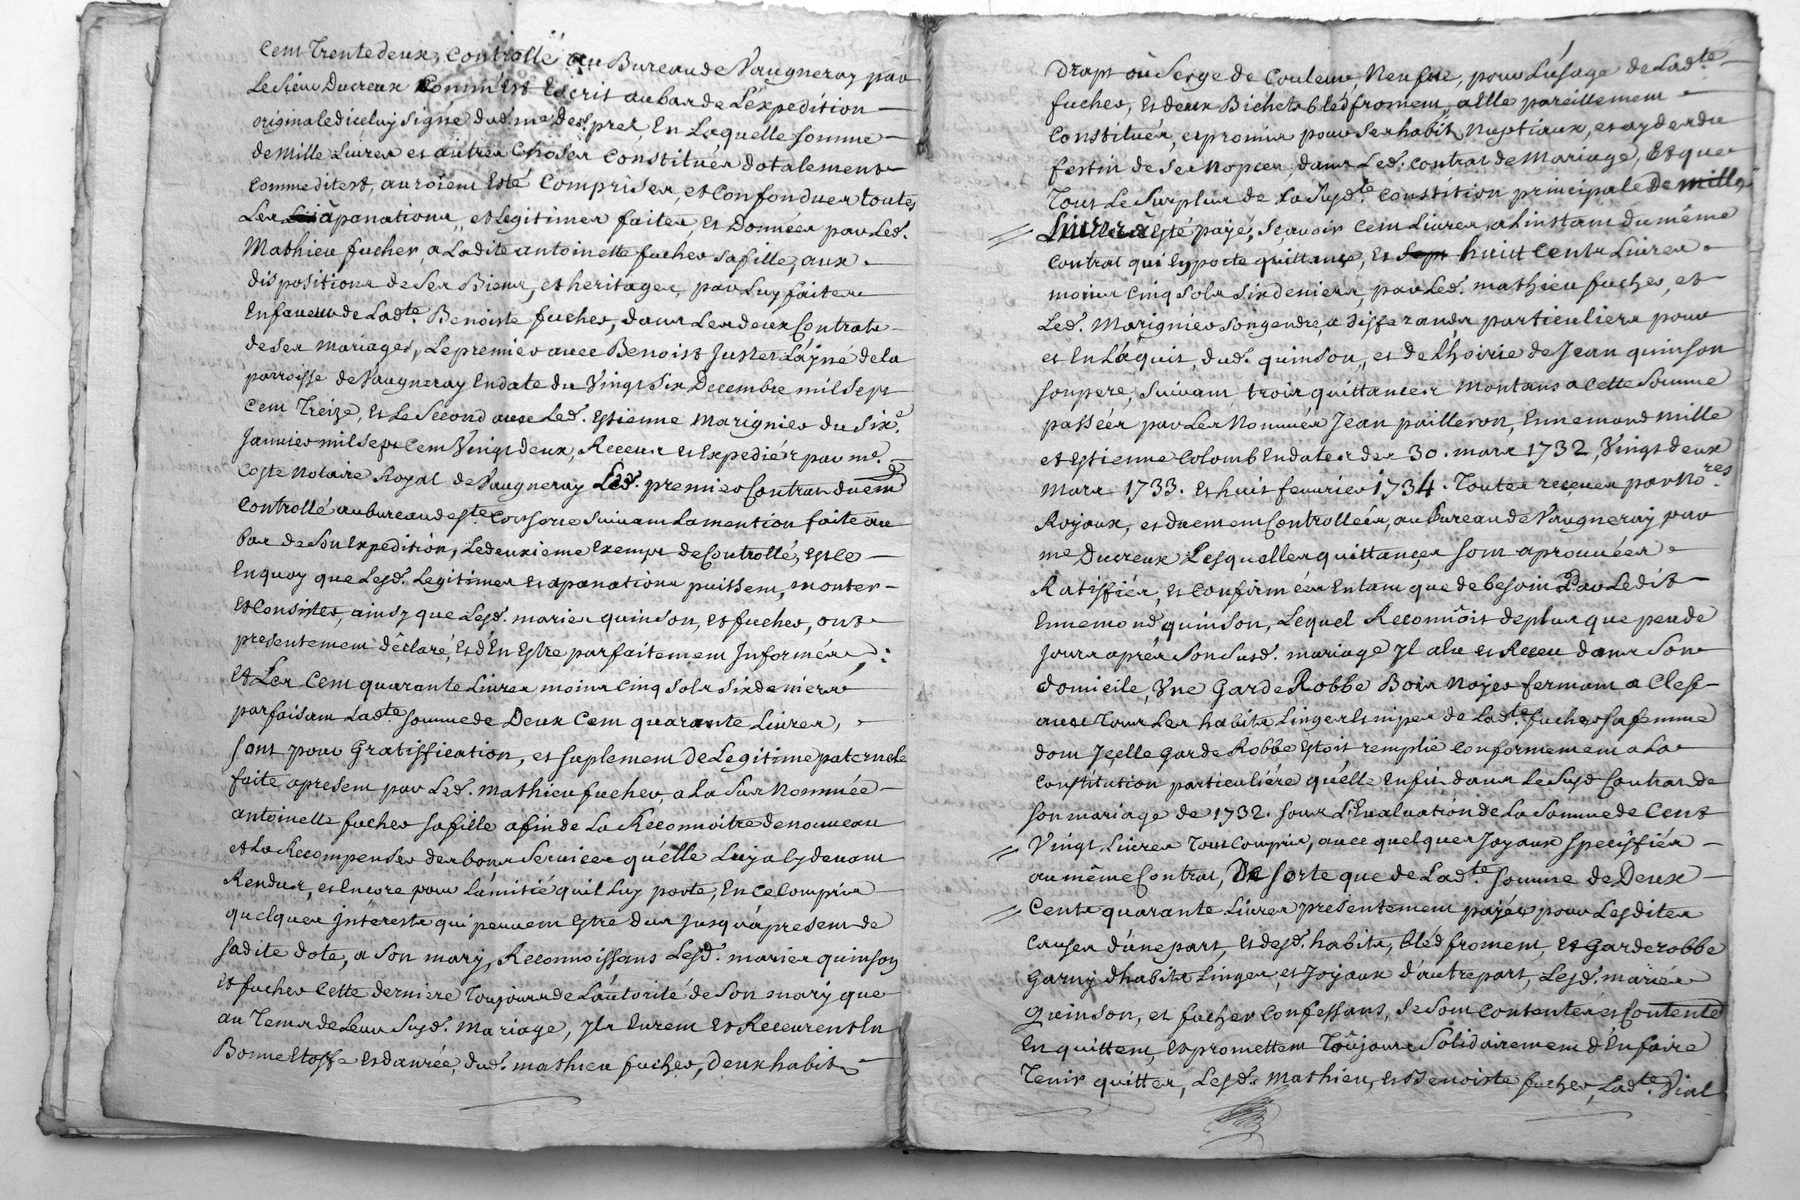 cent Trente deux, Controllé au Bureau de Vaugneray par
Le Sieur Ducreux Comm'est Escrit au bas de L'éxpedition
originale d'iceluy signé dud. me. Desprez, En Laquelle somme
de Mille Livres et autres Choses Constituées dotalement
comme dit est, auroient Esté Comprises, et Confondues toutes
Les apanations, et Legitimes faites, et Données par Led.
Mathieu fucher a Ladite antoinette fucher sa fille, aux
dispositions de Ses Biens, et heritages, par Luy faites
En faveur de Ladte. Benoiste fucher, dans Les deux Contrats
de ses mariages, Le premier avec Benoist Juster L'ayné de la
parroisse de Vaugneray En date du Vingt Six Decembre mil sept
cent Treize, Et Le Second avec Led. Estienne Marignier du Six.
Janvier mil Sept Cent Vingt deux, Receus et Expediés par me.
Coste Notaire Royal de Vaugneray Led. premier Contrat duemt
Controllé au bureau de ste. Consorce suivant La mention faite au
bas de Son Expedition, Le deuxieme Exempt de Controllé, Est Ce
En quoy que Lesd. Legitimes Et apanations puissent, monter
Et Consister, ainsy que Lesd. mariés quinson, Et fucher, ont
presentement déclaré, Et d'En Estre parfaitement Informés;
Et Les Cent quarante Livres moins Cinq Sols Six deniers
parfaisant Ladte. Somme de Deux Cent quarante Livres,
Sont pour Gratiffication, et suplement De Legitime paternelle
faite apresent par Led. Mathieu fucher, a La Sus Nommée
antoinette fucher sa fille afin de La Reconnoitre de nouveau
et La Recompenser des bons Services qu'elle Luy a Cy devant
Rendus, et Encore pour L'amitié qu'il Luy porte, En ce Compris
quelques interests qui peuvent Estre dus Jusqu'apresent de
sadite dote, a Son mary, Reconnoissans Lesd. mariés quinson
Et fucher Cette derniere Toujours de L'autorité de Son mary que
au Tems de Leur Susd. Mariage, Ils Eurent Et Receurent En
Bonne Etoffe Et danrée, dud. mathieu fucher, deux habits
Drapt ou Serge de Couleur Neufve, pour L'usage de Ladte.
fucher, Et deux Bichets bled froment, a Elle pareillement
Constitués, et promis pour Ses habits Nuptiaux, et ayder du
festin de Ses Nopces, dans Led. contrat de Mariage, Et que
Tout Le Surplus de La Susdte. Constition principale de mille
Livres a Esté payé, Sçavoir Cent Livres a L'instant du même
Contrat qui En porte quittance, Et Sept huict Cents Livres
moins Cinq Sols Six deniers, par Led. mathieu fucher, et
Led. Marignier son gendre, a differands particuliers pour
et En L'aquit, dud. quinson, et de L'hoirie de Jean quinson
Son pere, Suivant trois quittances Montans a Cette Somme
passées par Les Nommés Jean pailleron, Ennemond Mille
et Estienne Colomb En dates des 30. mars 1732, Vingt deux
Mars 1733. Et huit fevrier 1734. Toutes reçues par Nores
Royaux, et duement Controllées, au Bureau de Vaugneray par
me Ducreux Lesquelles quittances sont aprouvées
Ratiffiés, et Confirmées En tant que de besoin Par Ledit
Ennemond quinson, Lequel Reconnoit de plus que peu de
Jours aprés Son Susd. mariage Il a Eu et Receu dans Son
domicile, Une Garde Robbe Bois Noyer fermant a Clef
avec Tous Les habits Linges Et nipes de Ladte. fucher sa femme
dont Icelle Garde Robbe Estoit remplie Conformement a La
Constitution particuliére qu'elle En fit dans Le Susd Contrat de
Son mariage de 1732. Sous L'Evaluation de La Somme de Cent
Vingt Livres Tout Compris, avec quelques Joyaux Speciffiés
au même Contrat, De Sorte que de Ladte. Somme de Deux
Cents quarante Livres presentement payée pour Lesdites
Causes d'une part, Et desd. habits, bléd froment, Et Garderobbe
Garny d'habits Linges, et Joyaux d'autre part, Lesd. mariés
quinson, et fucher Confessans, Se Sont Contentés et Contente
En quittent, Et promettent Toujours Solidairement d'En faire
Tenir quittes, Lesd. Mathieu, et Benoiste fucher, Ladte. Vial